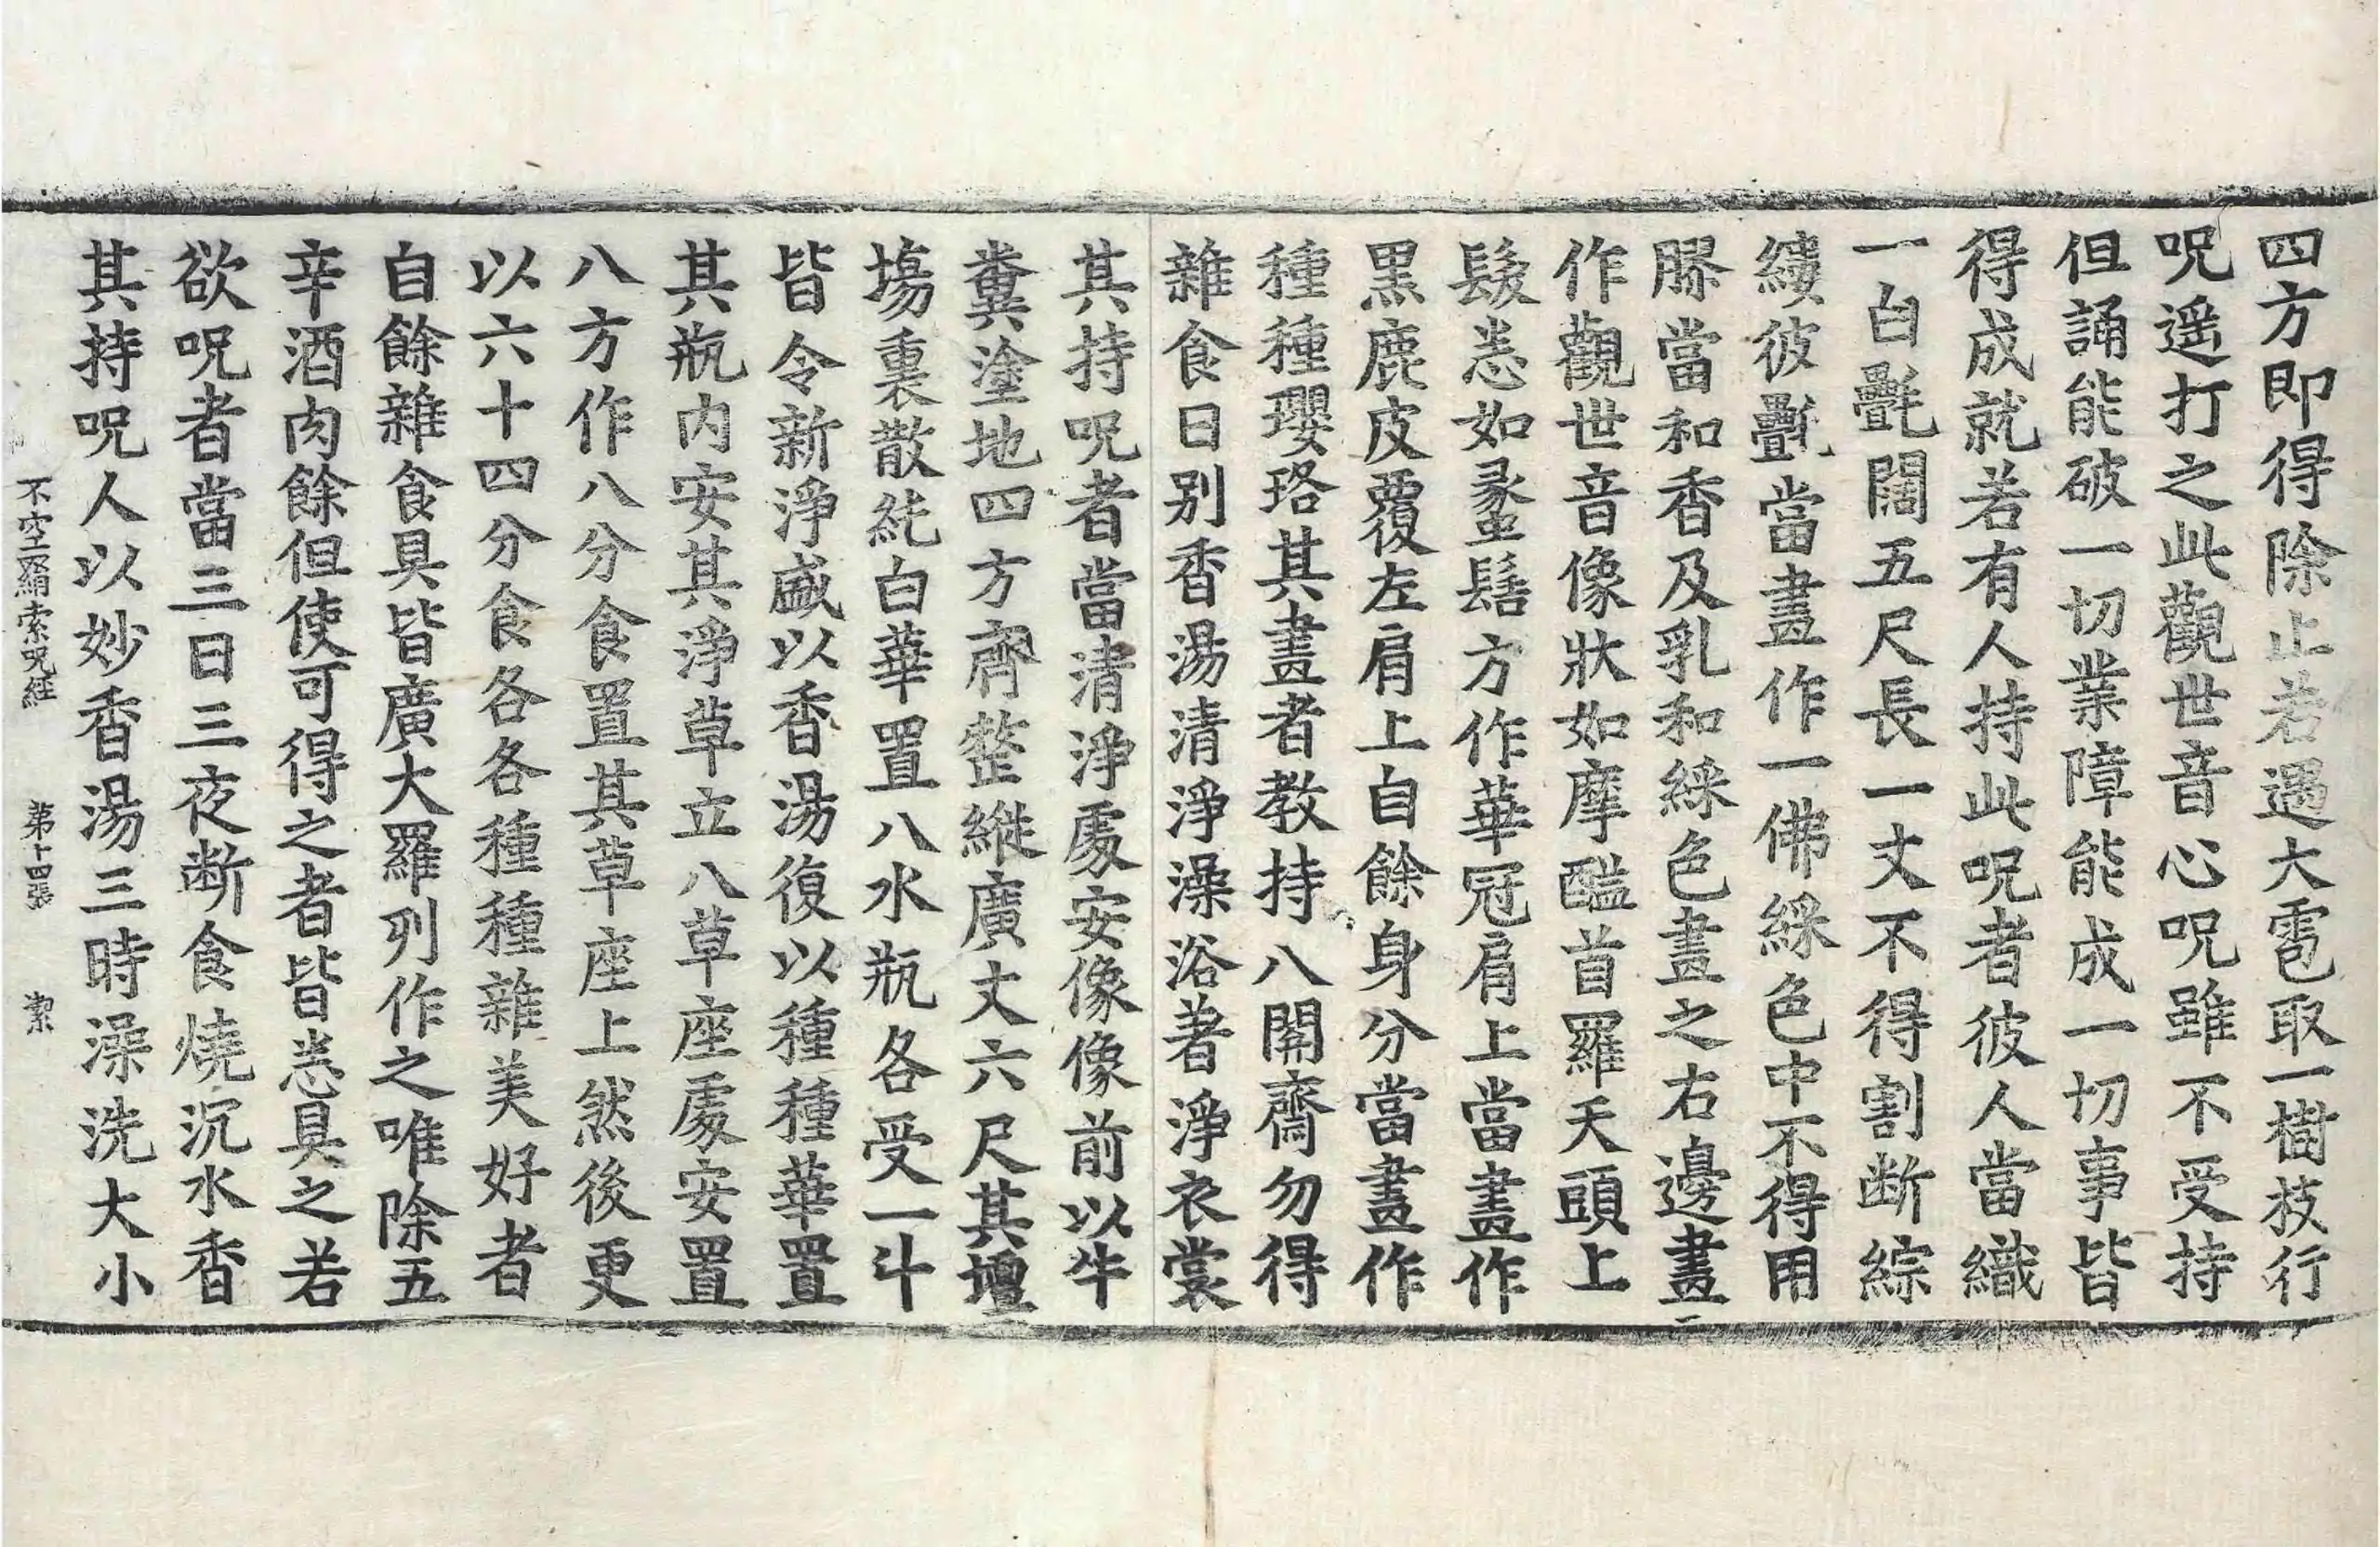 四方即得除止若遇大雹取一樹枝行
呪遥打之此觀世音心呪雖不受持
但誦能破一切業障能成一切事皆
得成就若有人持此呪者彼人當織
一白㲲闊五尺長一丈不得割断綜
縷彼㲲當畫作一佛綵色中不得用
膠當和香及乳和綵色畫之右邊畫
作觀世音像狀如摩醯首羅天頭上
髮悉如螽髻方作華冠肩上當畫作
黑鹿皮覆左肩上自餘身分當畫作
種種瓔珞其畫者教持八關齋勿得
雜食日别香湯清淨澡浴著淨衣裳
其持呪者當清淨處安像像前以牛
糞塗地四方齊整縱廣丈六尺其壇
場裏散純白華置八水瓶各受一斗
皆令新淨盛以香湯復以種種華置
其瓶内安其淨草立八草座處安置
八方作八分食置其草座上然後更
以六十四分食各各種種雜美好者
自餘雜食具皆廣大羅列作之唯除五
辛酒肉餘但使可得之者皆悉具之若
欲呪者當三日三夜断食燒沉水香
其持呪人以妙香湯三時澡洗大小
不空羂索呪經　第十四張　潔